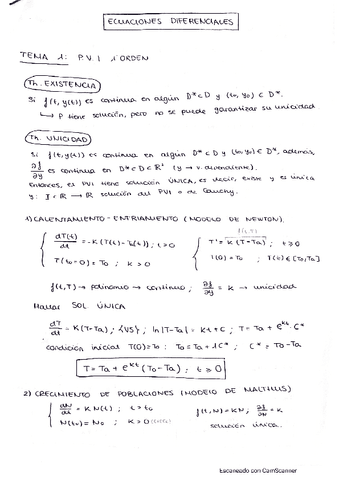 ECUACIONES DIFERENCIALES
TEMA 1: P.V.I 1º ORDEN
Th. EXISTENCIA
Si f(t, y(t)) es continua en algún D* ⊂ D y (t₀, y₀) ∈ D*.
↳ P tiene solución, pero no se puede garantizar su unicidad
Th. UNICIDAD
Si f(t, y(t)) es continua en algún D* ⊂ D y (t₀, y₀) ∈ D*, además,
∂f/∂y es continua en D* ⊂ D ⊂ R² (y → v. dependiente).
Entonces, el PVI tiene solución ÚNICA, es decir, existe y es única
y: I ⊂ R → R solución del PVI o de Cauchy.
1) CALENTAMIENTO - ENFRIAMIENTO (MODELO DE NEWTON).
dT(t)/dt = -K (T(t) - Ta(t)); t > 0
T(t₀=0) = T₀ ; K > 0
f(t,T)
T' = K (T - Ta) ; t > 0
T(0) = T₀ ; T(t) ∈ [T₀, Ta]
f(t, T) → polinomio → continuo ; ∂f/∂y = K → unicidad
Hallar SOL ÚNICA
dT/dt = K (T - Ta) ; {VS} ; ln|T - Ta| = Kt + C ; T = Ta + e^Kt C*
condición inicial T(0) = T₀ : T₀ = Ta + 1C* ; C* = T₀ - Ta
T = Ta + e^Kt (T₀ - Ta) ; t ≥ 0
2) CRECIMIENTO DE POBLACIONES (MODELO DE MALTHUS)
dN/dt = K N(t) ; t > t₀
N(t₀) = N₀ ; K > 0
f(t, N) = KN ; ∂f/∂N = K
solución única.
Escaneado con CamScanner